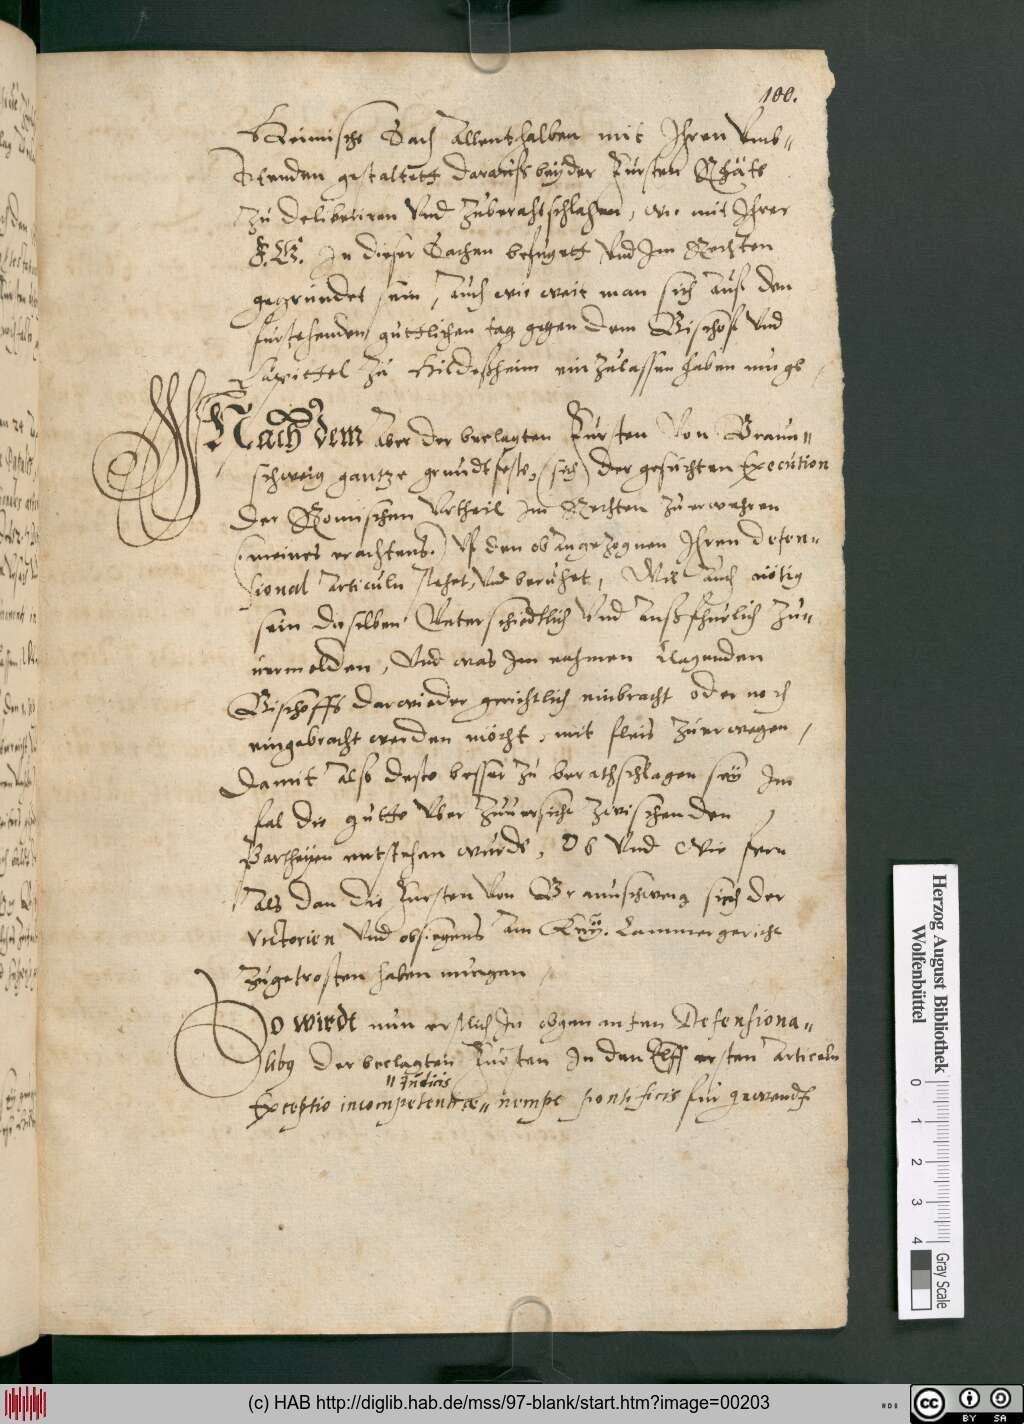 100.
Heimische Sach allenthalben mit Ihren Umb-
stenden gestaltett darauß beyder Fürsten Rhäte
zu deliberiren Und zuberahtschlahen, wie mit Ihrer
F. G. In dieser Sachen befugett Und Im Rechten
gegründet sein, Auch wie weit man sich Auß den
fürstehenden güttlichen tag gegen dem Bischof Und
Capittel zu Hildesheim einzulassen haben muge,
Nach dem Aber der beclagten Fürsten Von Braun-
schweig gantze grundtfeste, (sich) der gesuchten Execution
der Romischen Urtheil Im Rechten zuerwehren
(meines erachtens.) Uf den ob Angezognen Ihren Defen-
sional Articuln stehet, Und beruhet, Wil Auch nötig
sein dieselben Unterschiedtlich Und Außfhurlich zu-
uermelden, Und was Im nahmen Clagenden
Bischoffs darwieder gerichtlich einbracht oder noch
eingebracht werden möcht, mit fleis zuerwegen,
Damit Alß desto besser zu berathschlagen sey Im
fal die gutte Uber Zuuersicht zwischen den
Partheyen entstehen wurde, Ob Und Wie fern
Als dan die Fursten Von Braunschweig sich der
Victorien Und obsiegens Am Kay. Cammergericht
zugetrosten haben muegen,
So wirdt nun erstlich In obgenanten Defensiona-
libus der beclagten Fürsten In den Elff ersten Articeln
" Judicis
Exceptio incompetentiae " nempe pontificis für gewendt
Herzog August Bibliothek
Wolfenbüttel
0
1
2
3
4
Gray Scale
(c) HAB http://diglib.hab.de/mss/97-blank/start.htm?image=00203
cc
BY SA